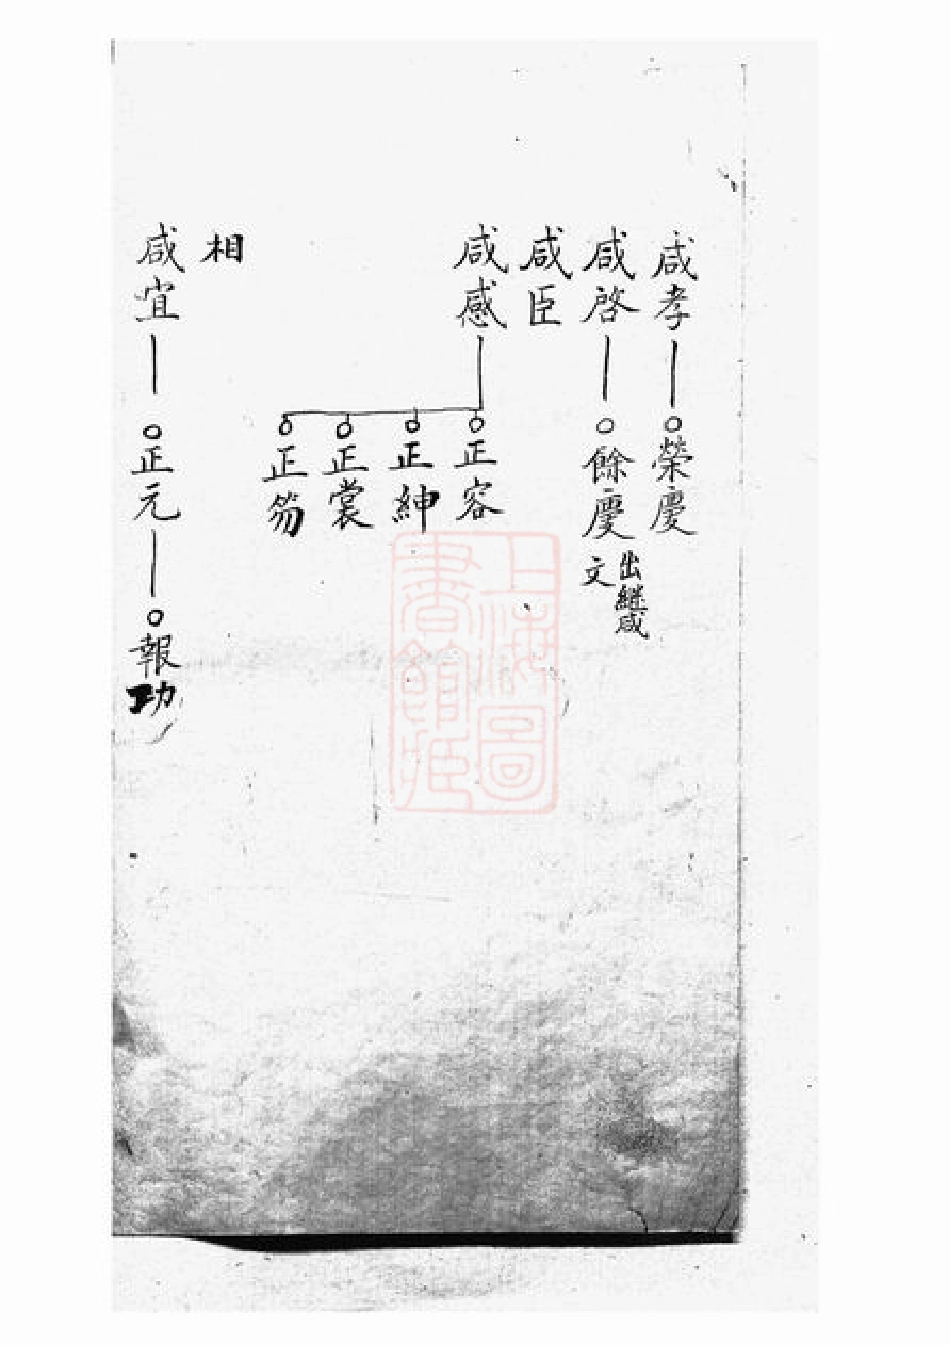 咸孝
榮慶
咸啓
餘慶
出繼咸
文
咸臣
咸感
正容
正紳
正裳
正笏
相
咸宜
正元
報功
上海圖
書館藏